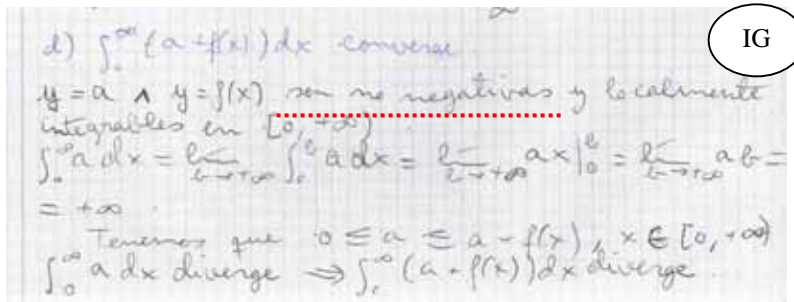 d) ∫₀^∞ (a + f(x)) dx converge.
IG
y = a ∧ y = f(x) son no negativas y localmente
integrables en [0, +∞).
∫₀^∞ a dx = lím_{b→+∞} ∫₀^b a dx = lím_{b→+∞} ax|₀^b = lím_{b→+∞} ab =
= +∞.
Tenemos que 0 ≤ a ≤ a + f(x), x ∈ [0, +∞)
∫₀^∞ a dx diverge ⇒ ∫₀^∞ (a + f(x)) dx diverge.